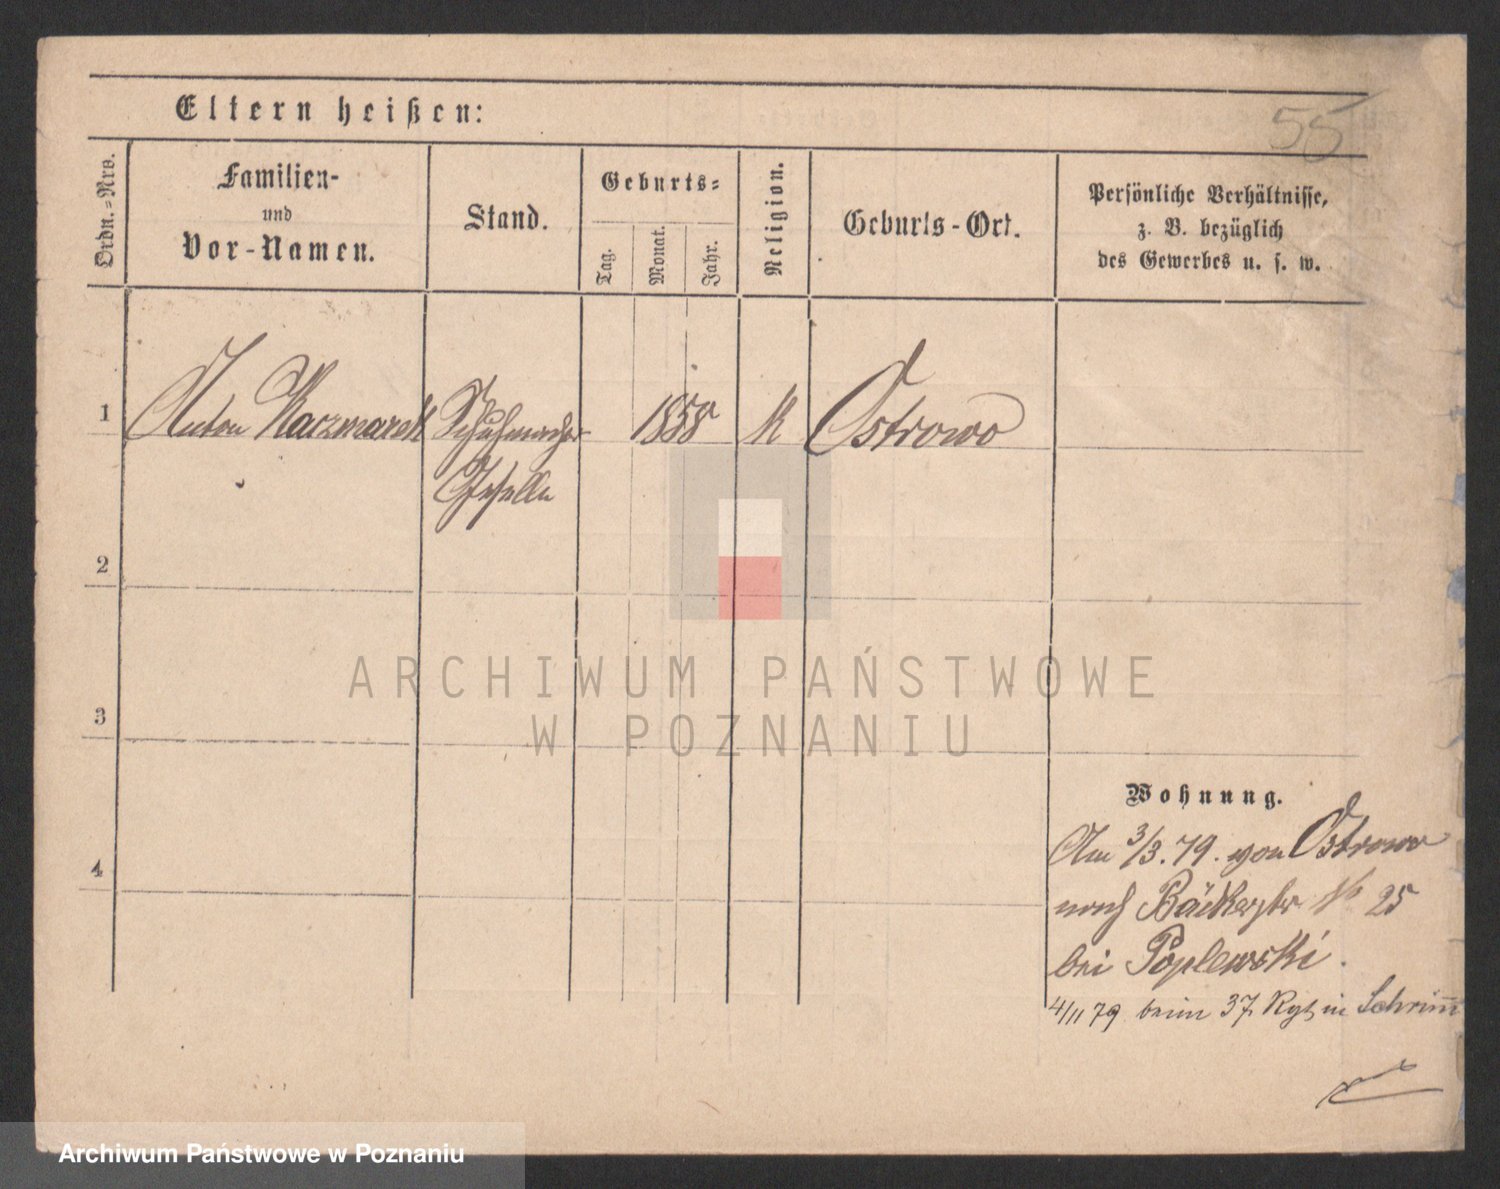 55
Eltern heißen:
Ordn.-Nro.
Familien-
und
Vor-Namen.
Stand.
Geburts-
Tag.
Monat.
Jahr.
Religion.
Geburts-Ort.
Persönliche Verhältnisse,
z. B. bezüglich
des Gewerbes u. s. w.
1 Anton Kaczmarek Schuhmacher 1858 K Ostrowo
Geselle
2
3
4
ARCHIWUM PAŃSTWOWE
W POZNANIU
Wohnung.
Am 3/3.79. von Ostrowo
nach Bäckerstr No 25
bei Poplewski.
4/11 79 beim 37 Rgt in Schrim̄
Archiwum Państwowe w Poznaniu